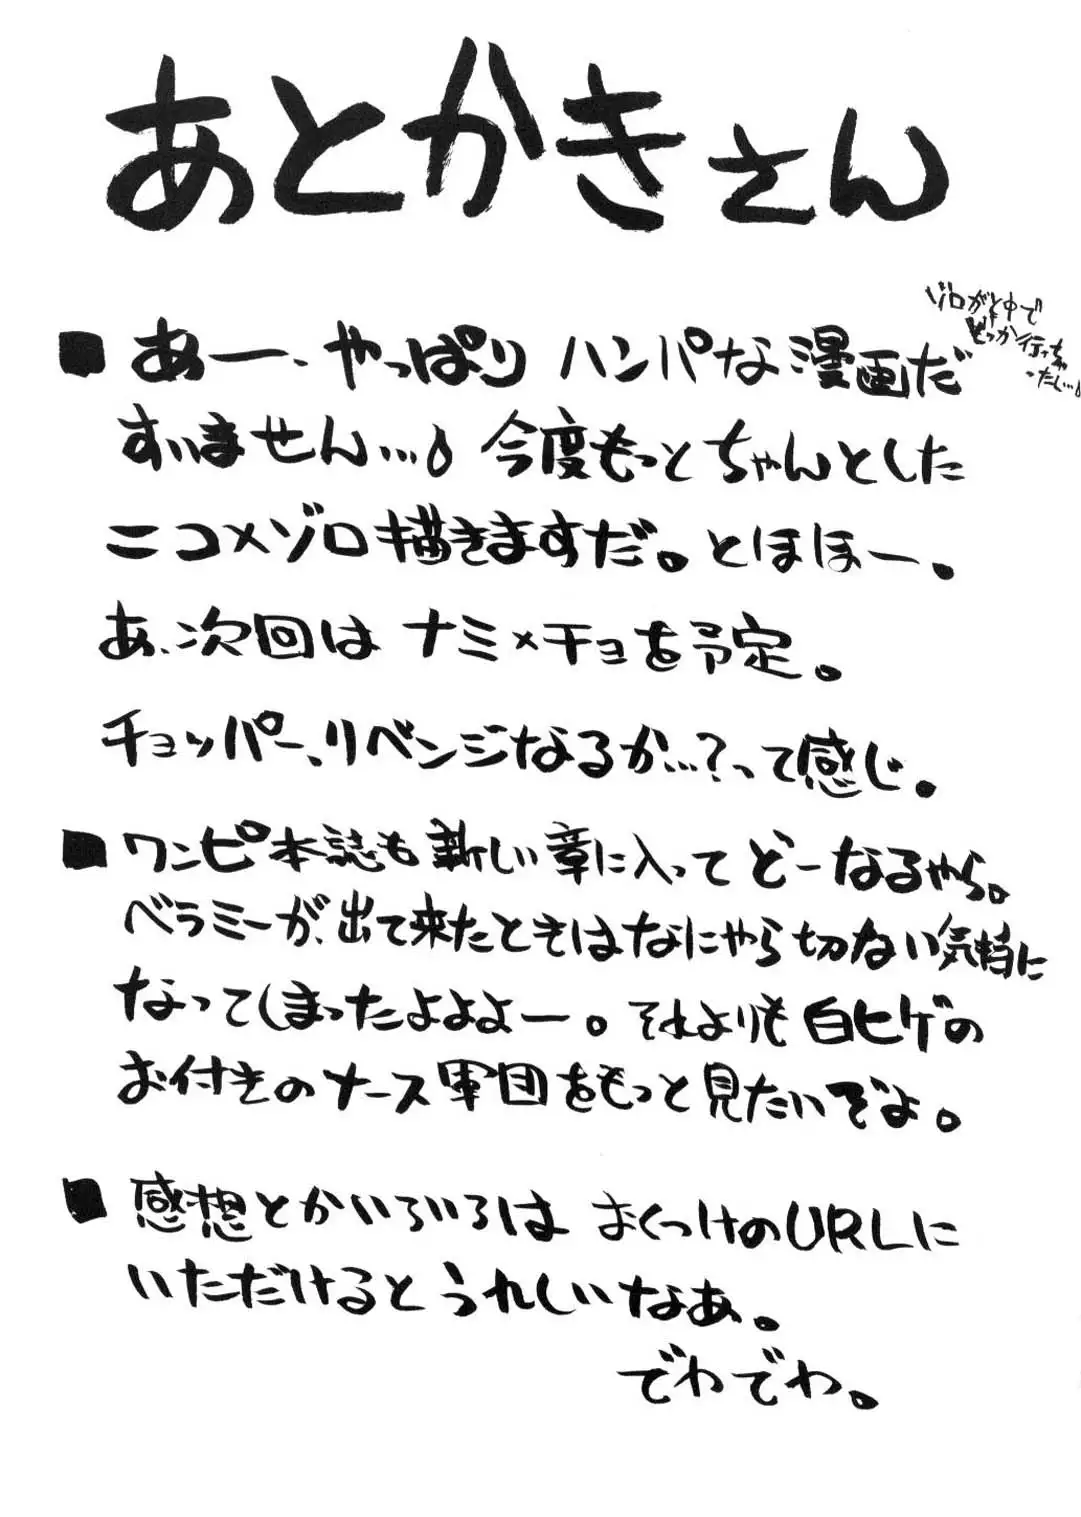 あとかきさん
■ あー、やっぱり ハンパな漫画だ
ゾロが途中で
どっか行っちゃ
ったし…♪
すいません…♪ 今度もっとちゃんとした
ニコ×ゾロ描きますだ。とほほー。
あ、次回は ナミ×チョを予定。
チョッパー、リベンジなるか…?って感じ。
■ ワンピ本誌も新しい章に入ってどーなるやら。
ベラミーが、出て来たときはなにやら切ない気持に
なってしまったよよよー。それよりも白ヒゲの
お付きのナース軍団をもっと見たいぞよ。
■ 感想とかいろいろは おくつけのURLに
いただけるとうれしいなあ。
でわでわ。